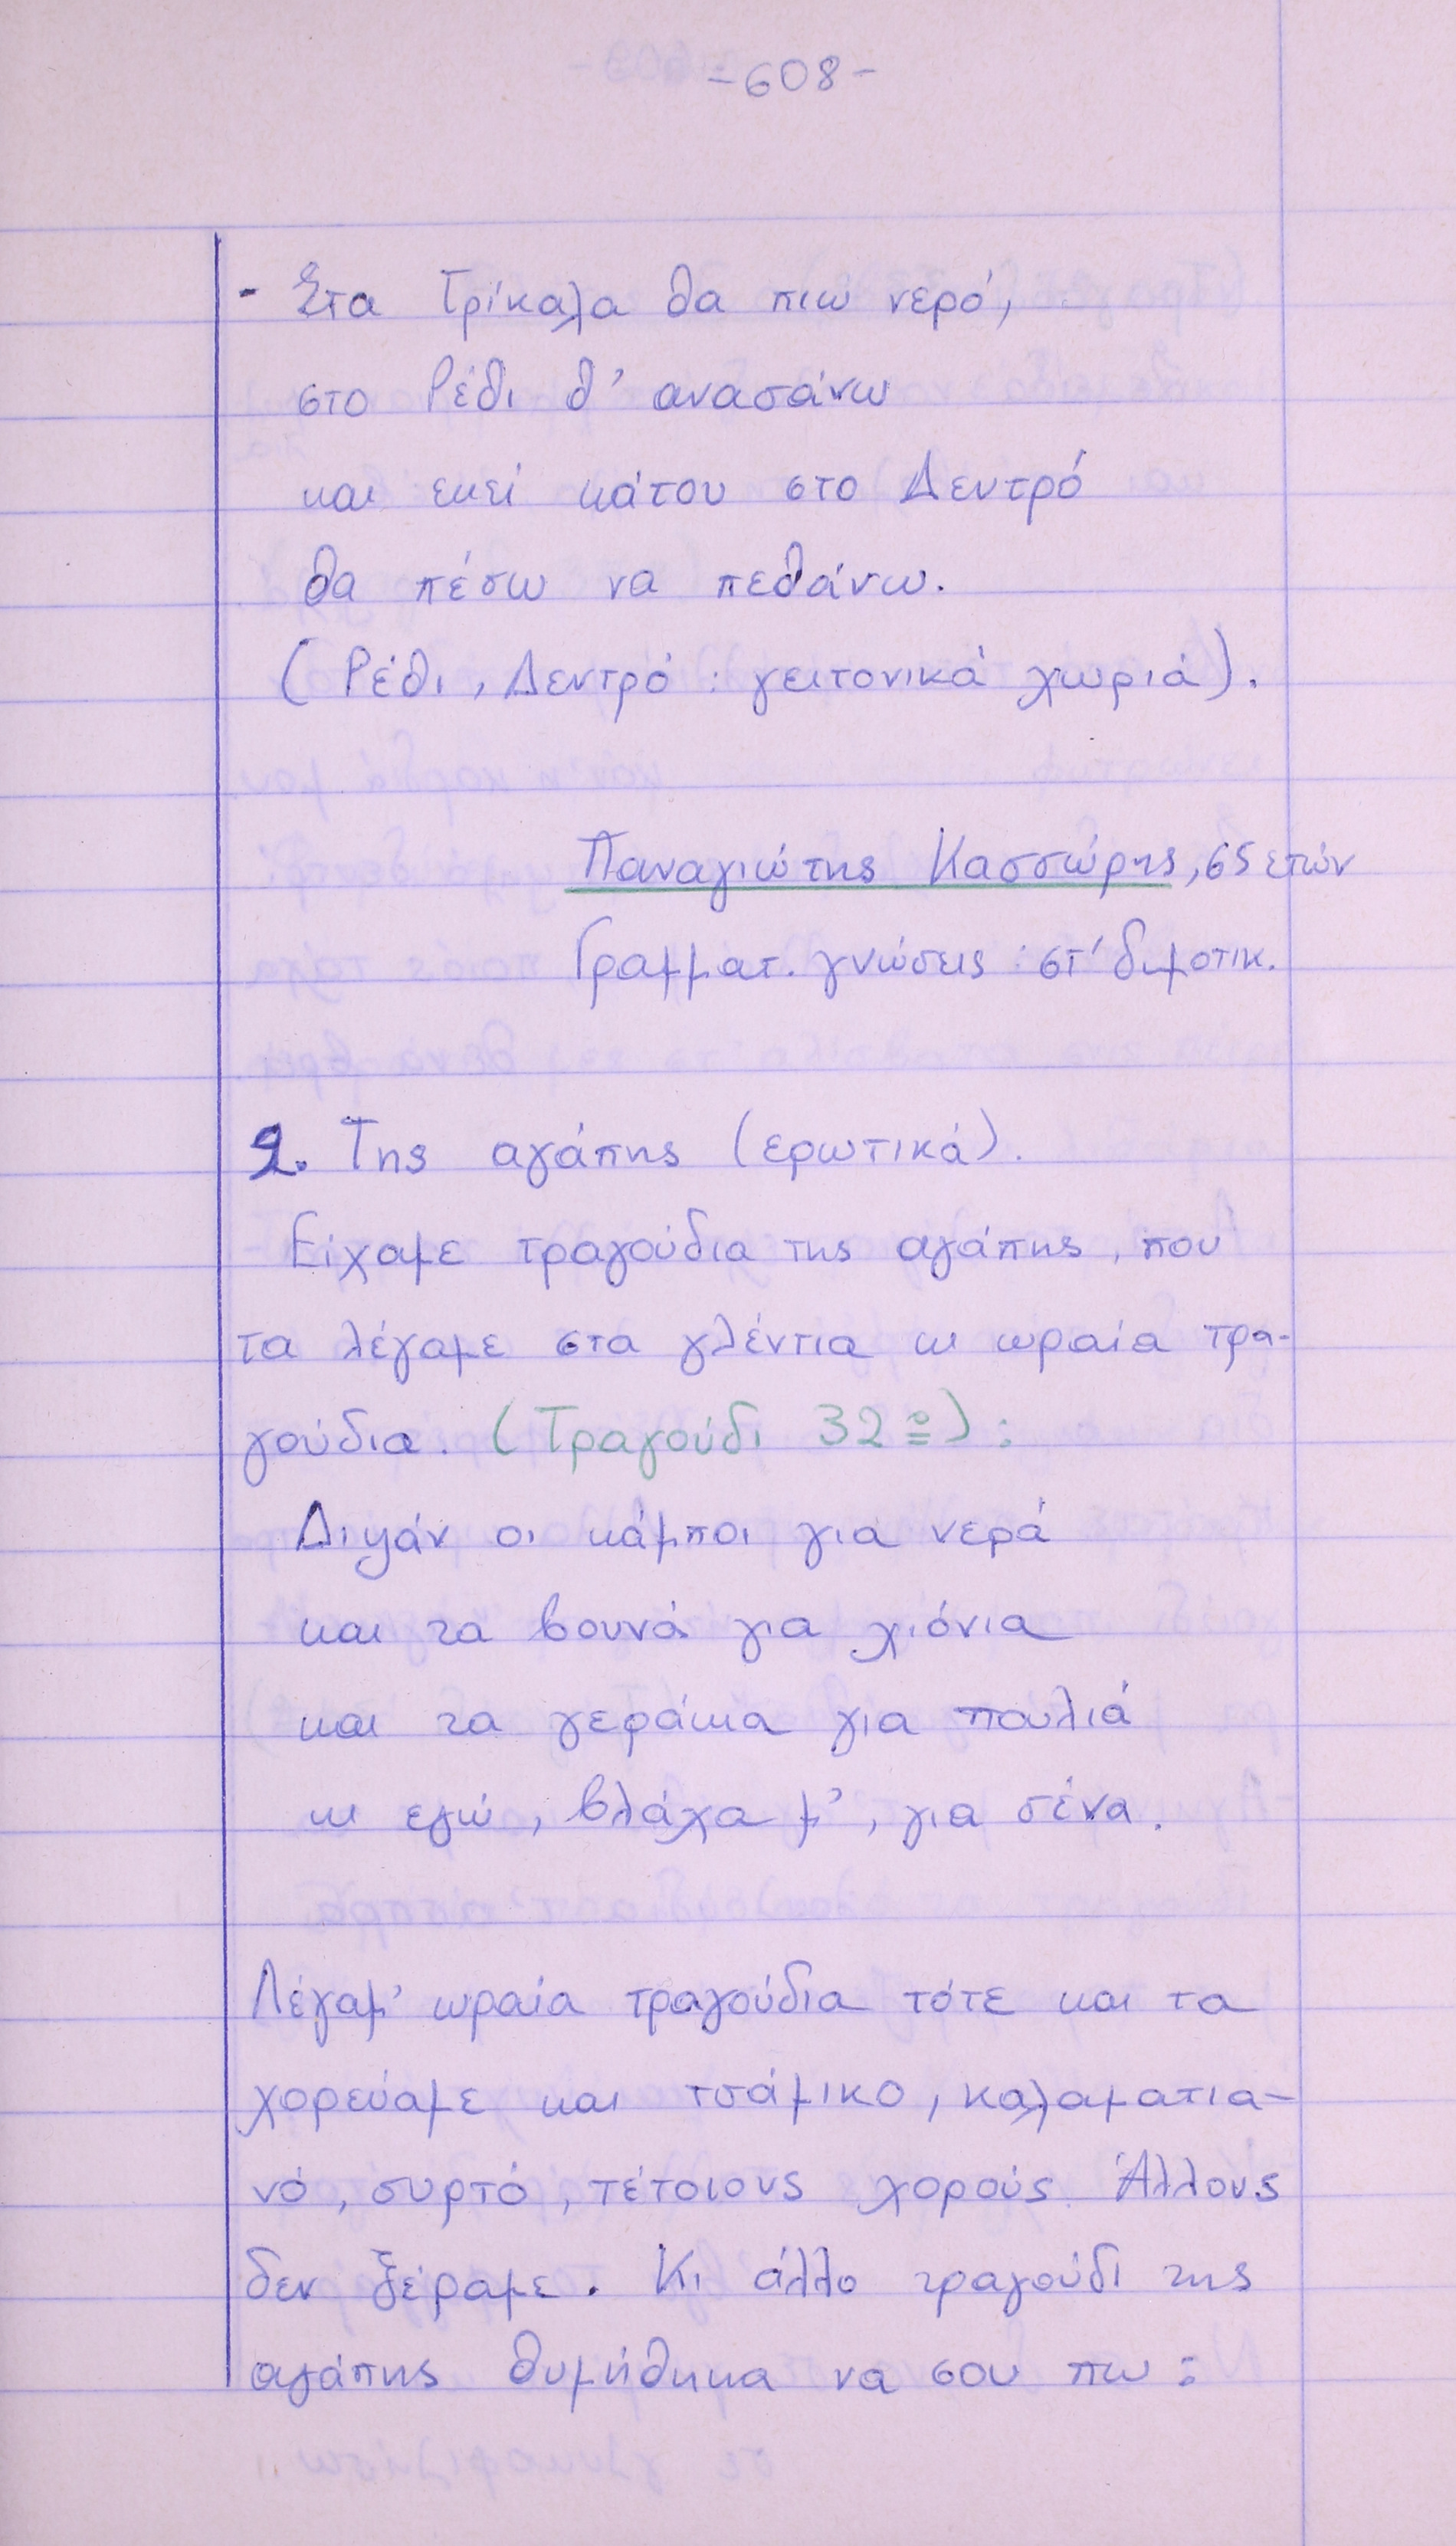 -608-
- Στα Τρίκαλα θα πιω νερό,
στο Ρέθι θ' ανασάνω
και εκεί κάτου στο Δεντρό
θα πέσω να πεθάνω.
(Ρέθι, Δεντρό : γειτονικά χωριά).
Παναγιώτης Κασσώρης, 65 ετών
Γραμματ. γνώσεις : στ' δημοτικ.
2. Της αγάπης (ερωτικά).
Είχαμε τραγούδια της αγάπης, που
τα λέγαμε στα γλέντια κι ωραία τρα-
γούδια. (Τραγούδι 32º) :
Διψάν οι κάμποι για νερά
και τα βουνά για χιόνια
και τα γεράκια για πουλιά
κι εγώ, βλάχα μ', για σένα.
Λέγαμ' ωραία τραγούδια τότε και τα
χορεύαμε και τσάμικο, καλαματια-
νό, συρτό, τέτοιους χορούς. Άλλους
δεν ξέραμε. Κι άλλο τραγούδι της
αγάπης θυμήθηκα να σου πω :